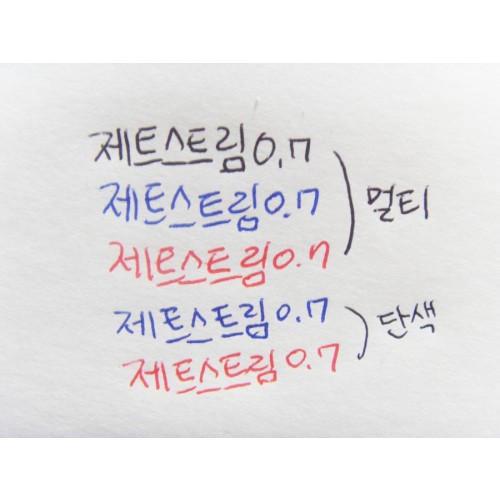 제트스트림0.7
제트스트림0.7
제트스트림0.7
멀티
제트스트림0.7
제트스트림0.7
단색